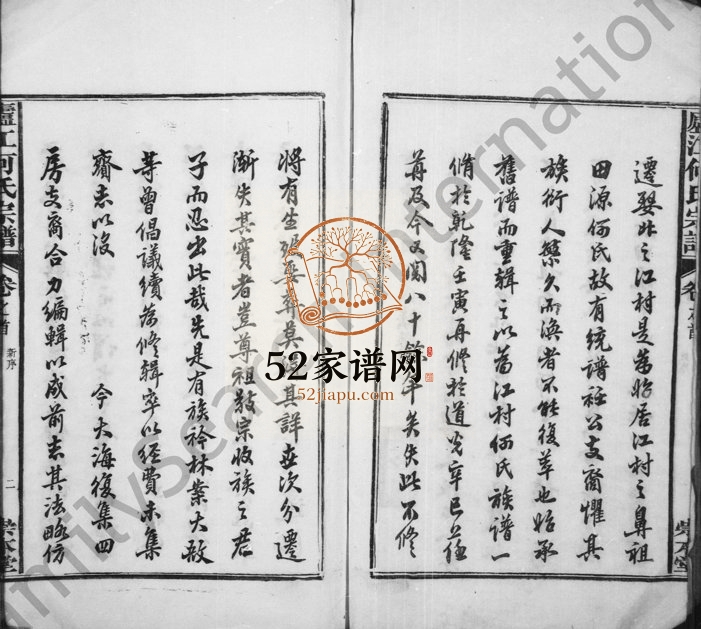 廬江何氏宗譜
卷之首
榮本堂
遷娶北之江村是為始居江村之鼻祖
田源何氏故有統譜社公支裔懼其
族衍人繁久而渙者不能復萃也始承
舊譜而重輯之以為江村何氏族譜一
脩於乾隆壬寅再修於道光辛巳
苒及今又閱八十餘年矣失此不修
將有生
其詳世次分遷
漸失其實者豈尊祖敬宗收族之君
子而忍出此哉先是有族衿林業大啟
等曾倡議續為修輯率以經費未集
齎志以沒 今大海復集四
房支裔合力編輯以成前志其法略仿
廬江何氏宗譜
卷之首
新序
二
榮本堂
52家谱网
52jiapu.com
FamilySearch International